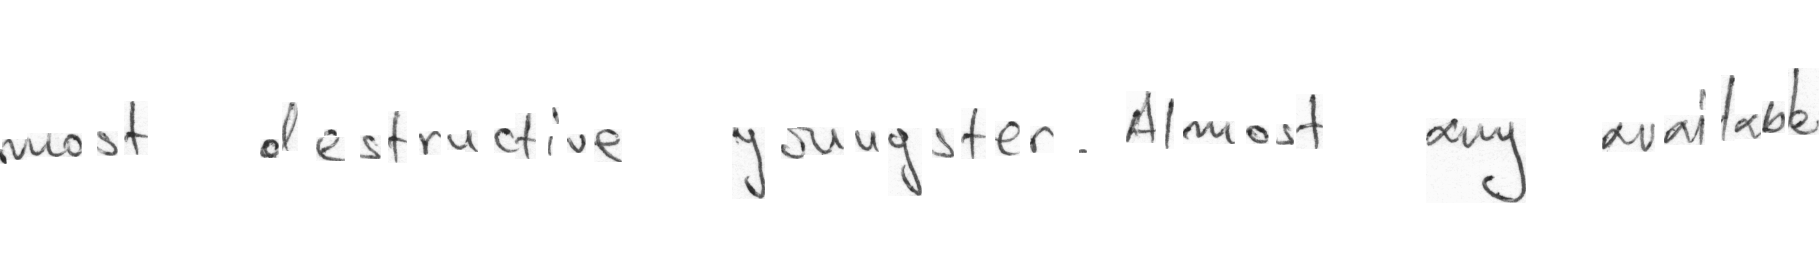 most destructive youngster. Almost any available